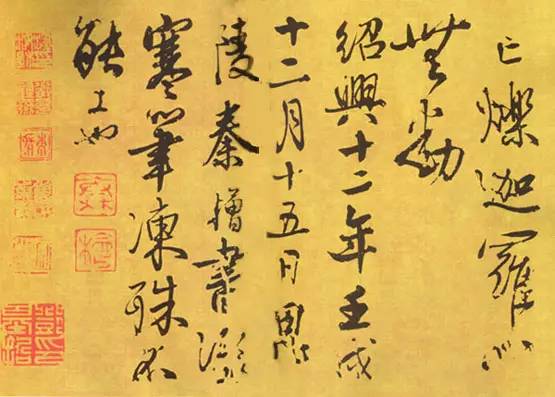 亡爍迦羅心
無動
紹興十二年壬戌
十二月十五日毘
陵秦檜書
寒筆凍殊不
能工也